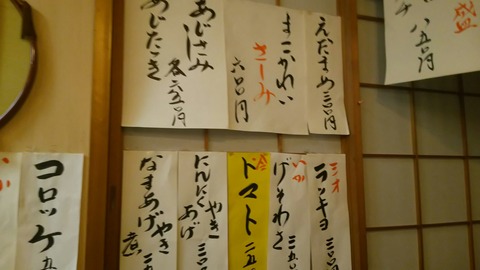 盛
八五〇円
えだまめ三〇〇円
まこがれい
さしみ
六〇〇円
あじさしみ
あじたたき
各六五〇円
ミオ
ラッキョ
三五〇
いか
げそわさ
三五〇
トマト
二五
にんにく
やき
あげ
三五〇
なすあげ
やき
煮
コロッケ五